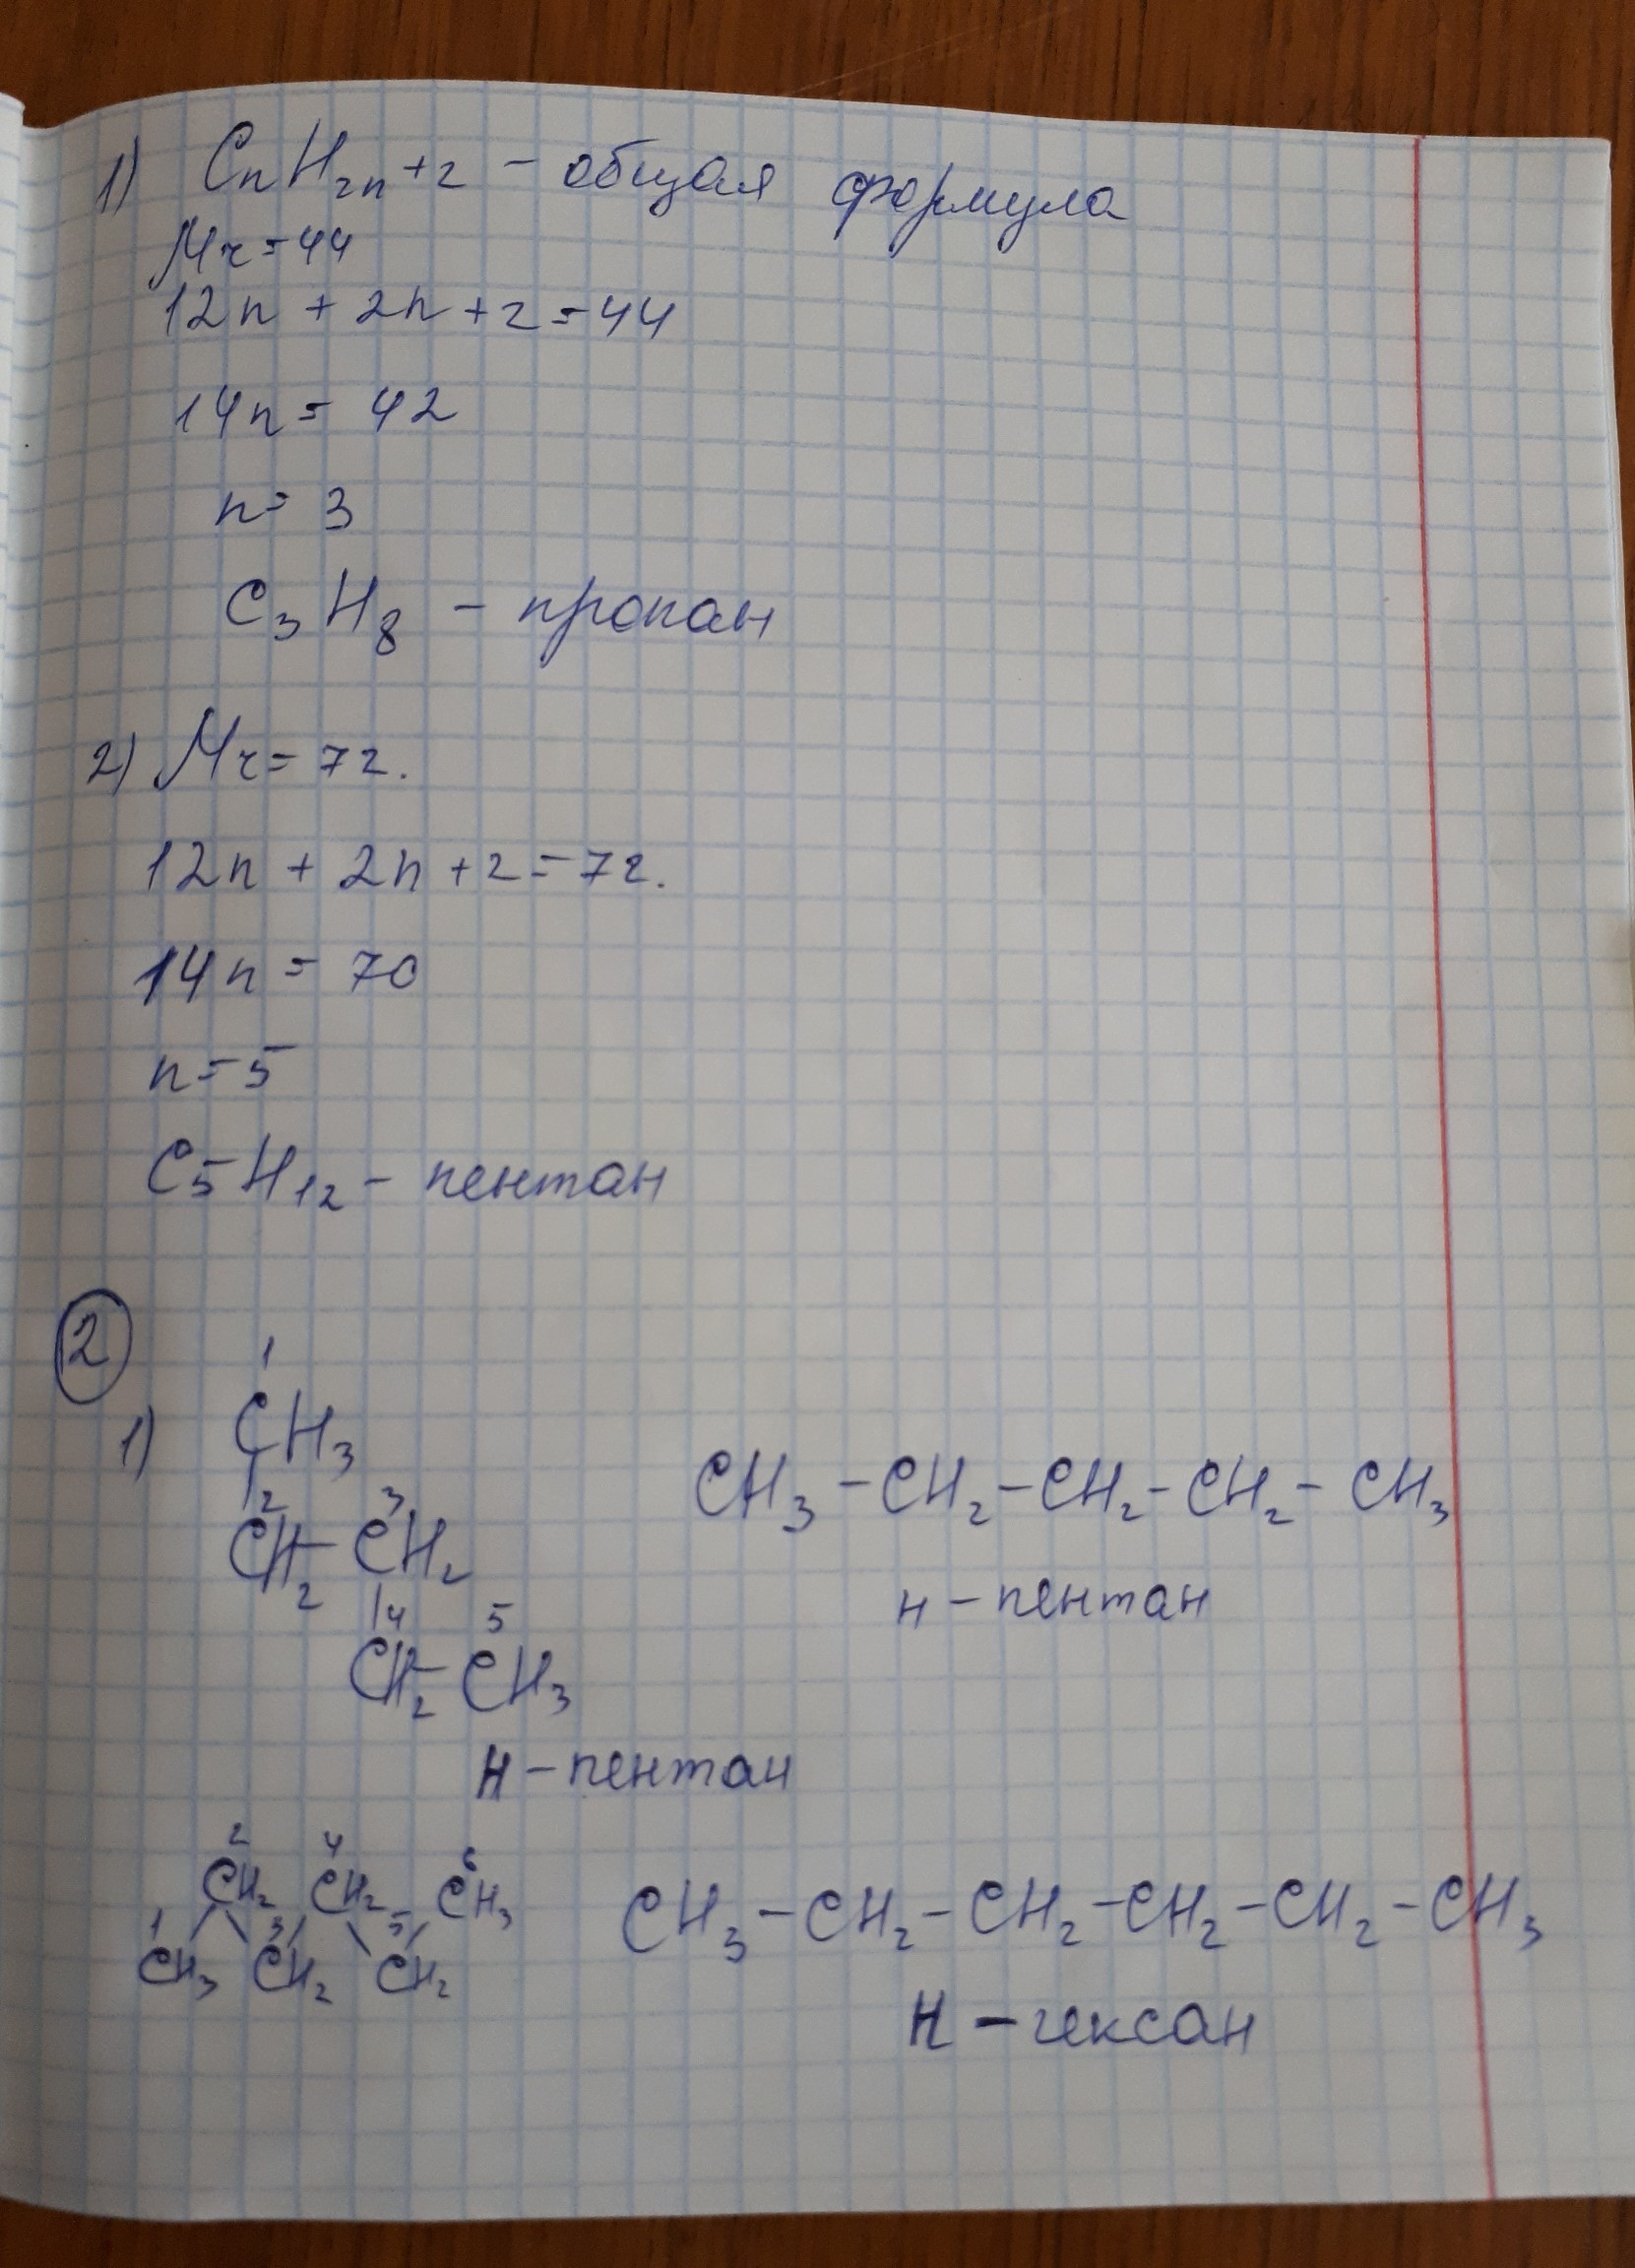 1) CnH2n+2 – общая формула
Mr = 44
12n + 2n + 2 = 44
14n = 42
n = 3
C3H8 – пропан
2) Mr = 72.
12n + 2n + 2 = 72.
14n = 70
n = 5
C5H12 – пентан
2
1
1) CH3
CH3 – CH2 – CH2 – CH2 – CH3
2 3
CH2 – CH2
н – пентан
4 5
CH2 – CH3
н – пентан
2 4 6
CH2 CH2 CH3
1 3 5
CH3 CH2 CH2
CH3 – CH2 – CH2 – CH2 – CH2 – CH3
н – гексан